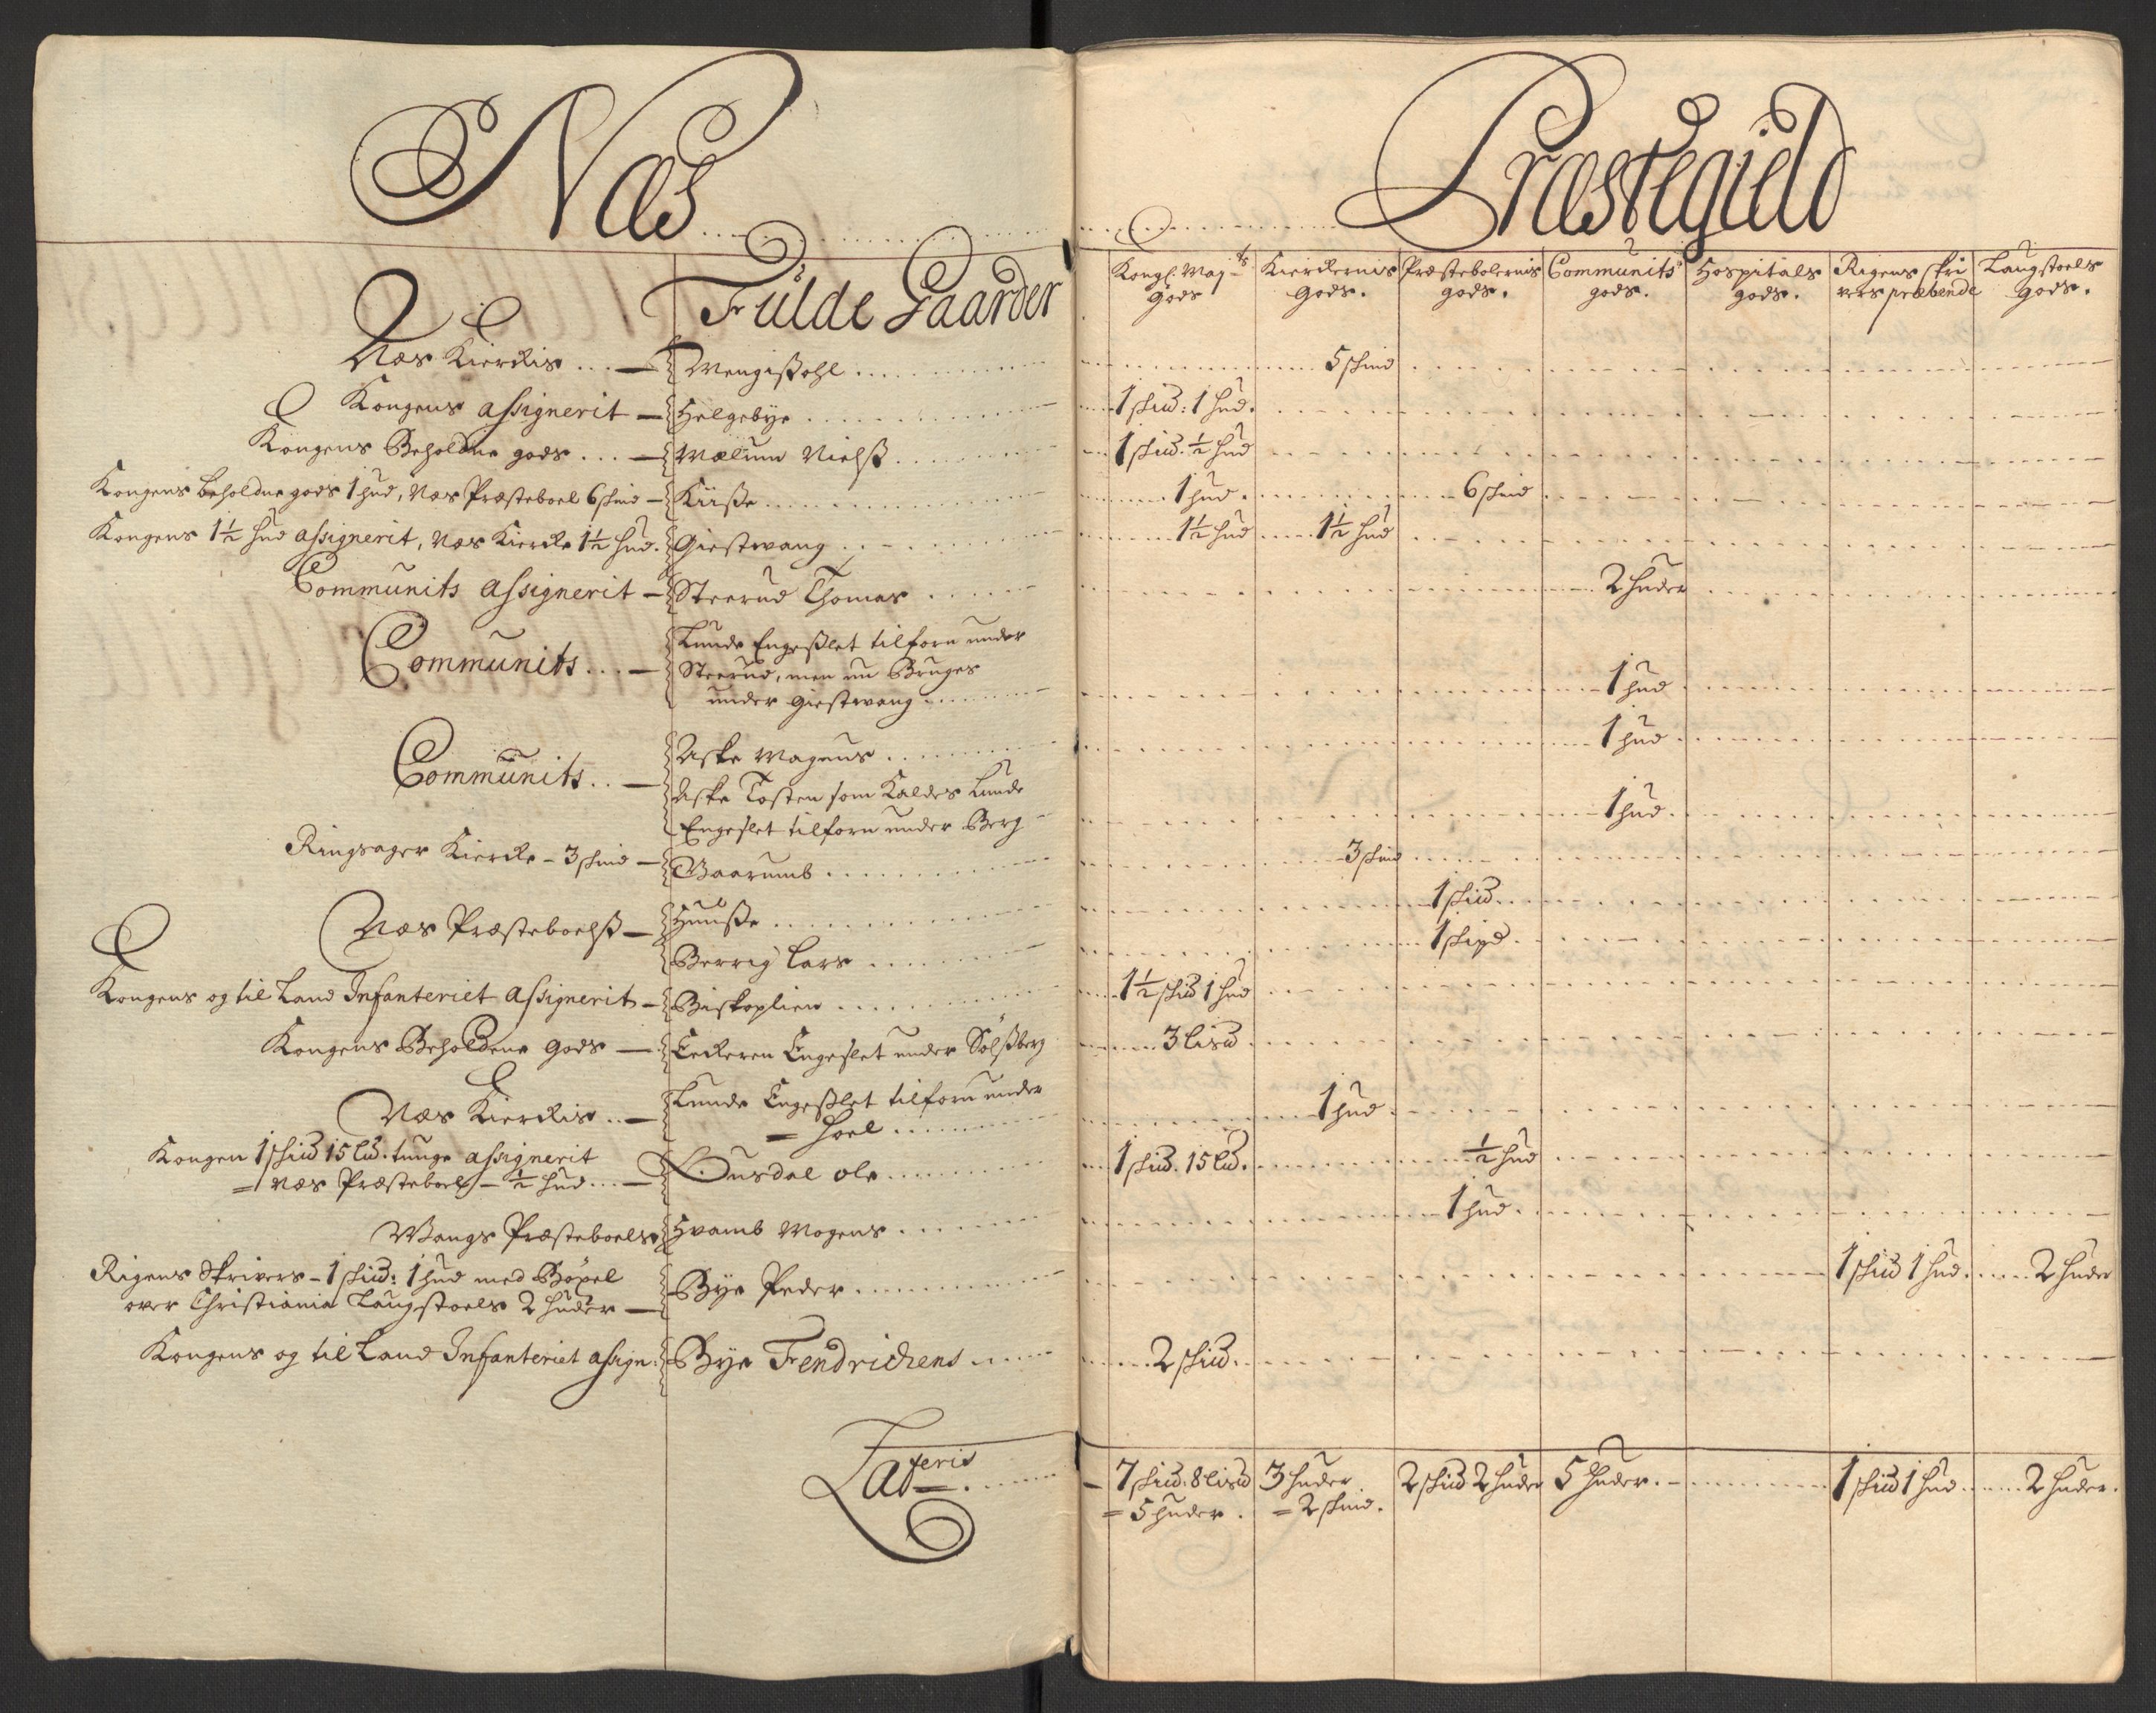 Næs Præstegield
Fulde Gaarder
Kongl: Maj:ts gods
Kierckernis gods.
Præstebolernis gods.
Communits gods.
Hospitals gods.
Rigens skrivers præbende
Laugstoels gods.
Næs Kierckis ... — Wengisßohl ... 5 skind
Kongens assignerit — Helgebye ... 1 skud: 1 hud.
Kongens Beholdne gods ... — Mælum Nielß ... 1 skud. ½ hud
Kongens beholdne gods 1 hud, Næs Præsteboel 6 skind — Kiiße ... 1 hud. ... 6 skind
Kongens 1½ hud assignerit, Næs Kiercke 1½ hud. Giestwang ... 1½ hud ... 1½ hud
Communits assignerit — Steerud Thomas ... 2 huder
Communits ... — Lunde Engeßlet tilforn under
Steerud, men nu Bruges
under Giestwang ... 1 hud
Communits .. — Aske Magnus ... 1 hud
Aske Tosten som Kaldes Lunde
Engeslet tilforn under Berg — 1 hud
Ringsager Kiercke - 3 skind — Baarumb ... 3 skind
Næs Præsteboelß — Huuße ... 1 skud.
Berrig Lars ... 1 skpd.
Kongens og til Land Infanteriet assignerit — Biskoplien ... 1½ skud 1 hud
Kongens Beholdene gods — Eckeren Engeslet under Sölßberg ... 3 lisd
Næs Kierckis .. — Lunde Engeßlet tilforn under
= Hoel ... 1 hud
Kongen 1 skud 15 ld. tunge assignerit
= Næs Præsteboel - ½ hud ... — Ousdal ole ... 1 skud. 15 ld. ... ½ hud
Wangs Præsteboels Hvamb Mogens ... 1 hud.
Rigens Skrivers - 1 skud: 1 hud med Böxel
over Christiania Laugstoels 2 huder — Bye Peder ... 1 skud 1 hud. ... 2 huder
Kongens og til Land Infanteriet assign: Bye Fendrichens ... 2 skud.
Lateris — 7 skud: 8 lisd = 5 huder. 3 huder = 2 skind. 2 skud 2 huder 5 huder. — 1 skud 1 hud ... 2 huder.